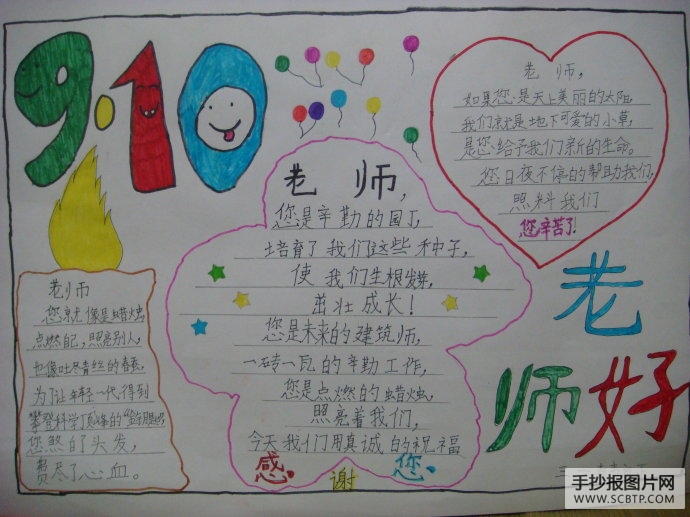 9.10
老师,
如果您是天上美丽的太阳,
我们就是地下可爱的小草,
是您给予我们新的生命。
您日夜不停的帮助我们,
照料我们
您辛苦了!
老师,
您是辛勤的园丁,
培育了我们这些种子,
使我们生根发芽,
茁壮成长!
您是未来的建筑师,
一砖一瓦的辛勤工作,
您是点燃的蜡烛,
照亮着我们,
今天我们用真诚的祝福
感谢您.
老师
您就像是蜡烛,
点燃自己,照亮别人,
也像吐尽青丝的春蚕,
为了让年轻一代得到
攀登科学顶峰的
您熬白了头发,
费尽了心血。
老
师好
手抄报图片网
WWW.SCBTP.COM